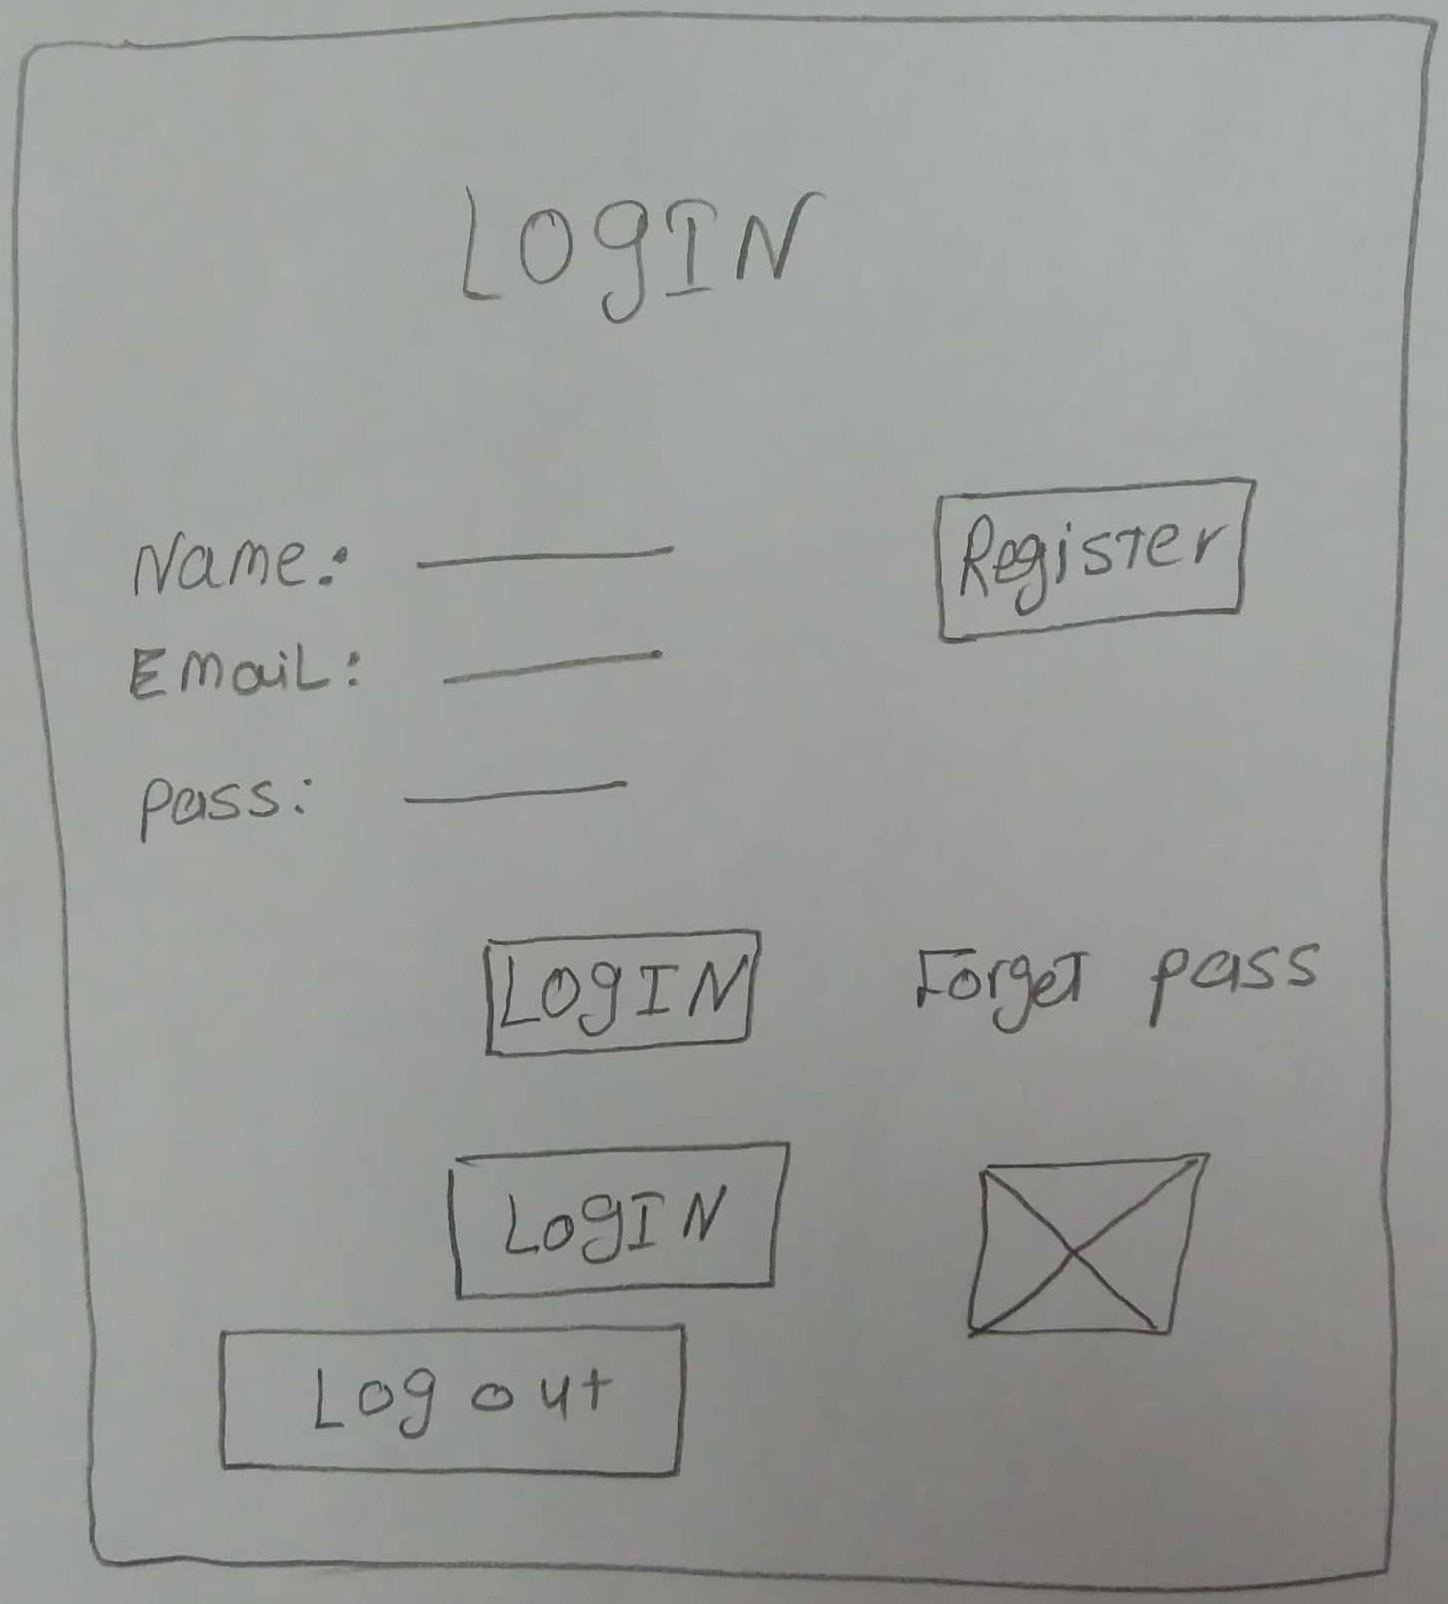 LOgIN
Name:
Register
EmaiL:
pass:
LOgIN
Forget pass
LogIN
Log out